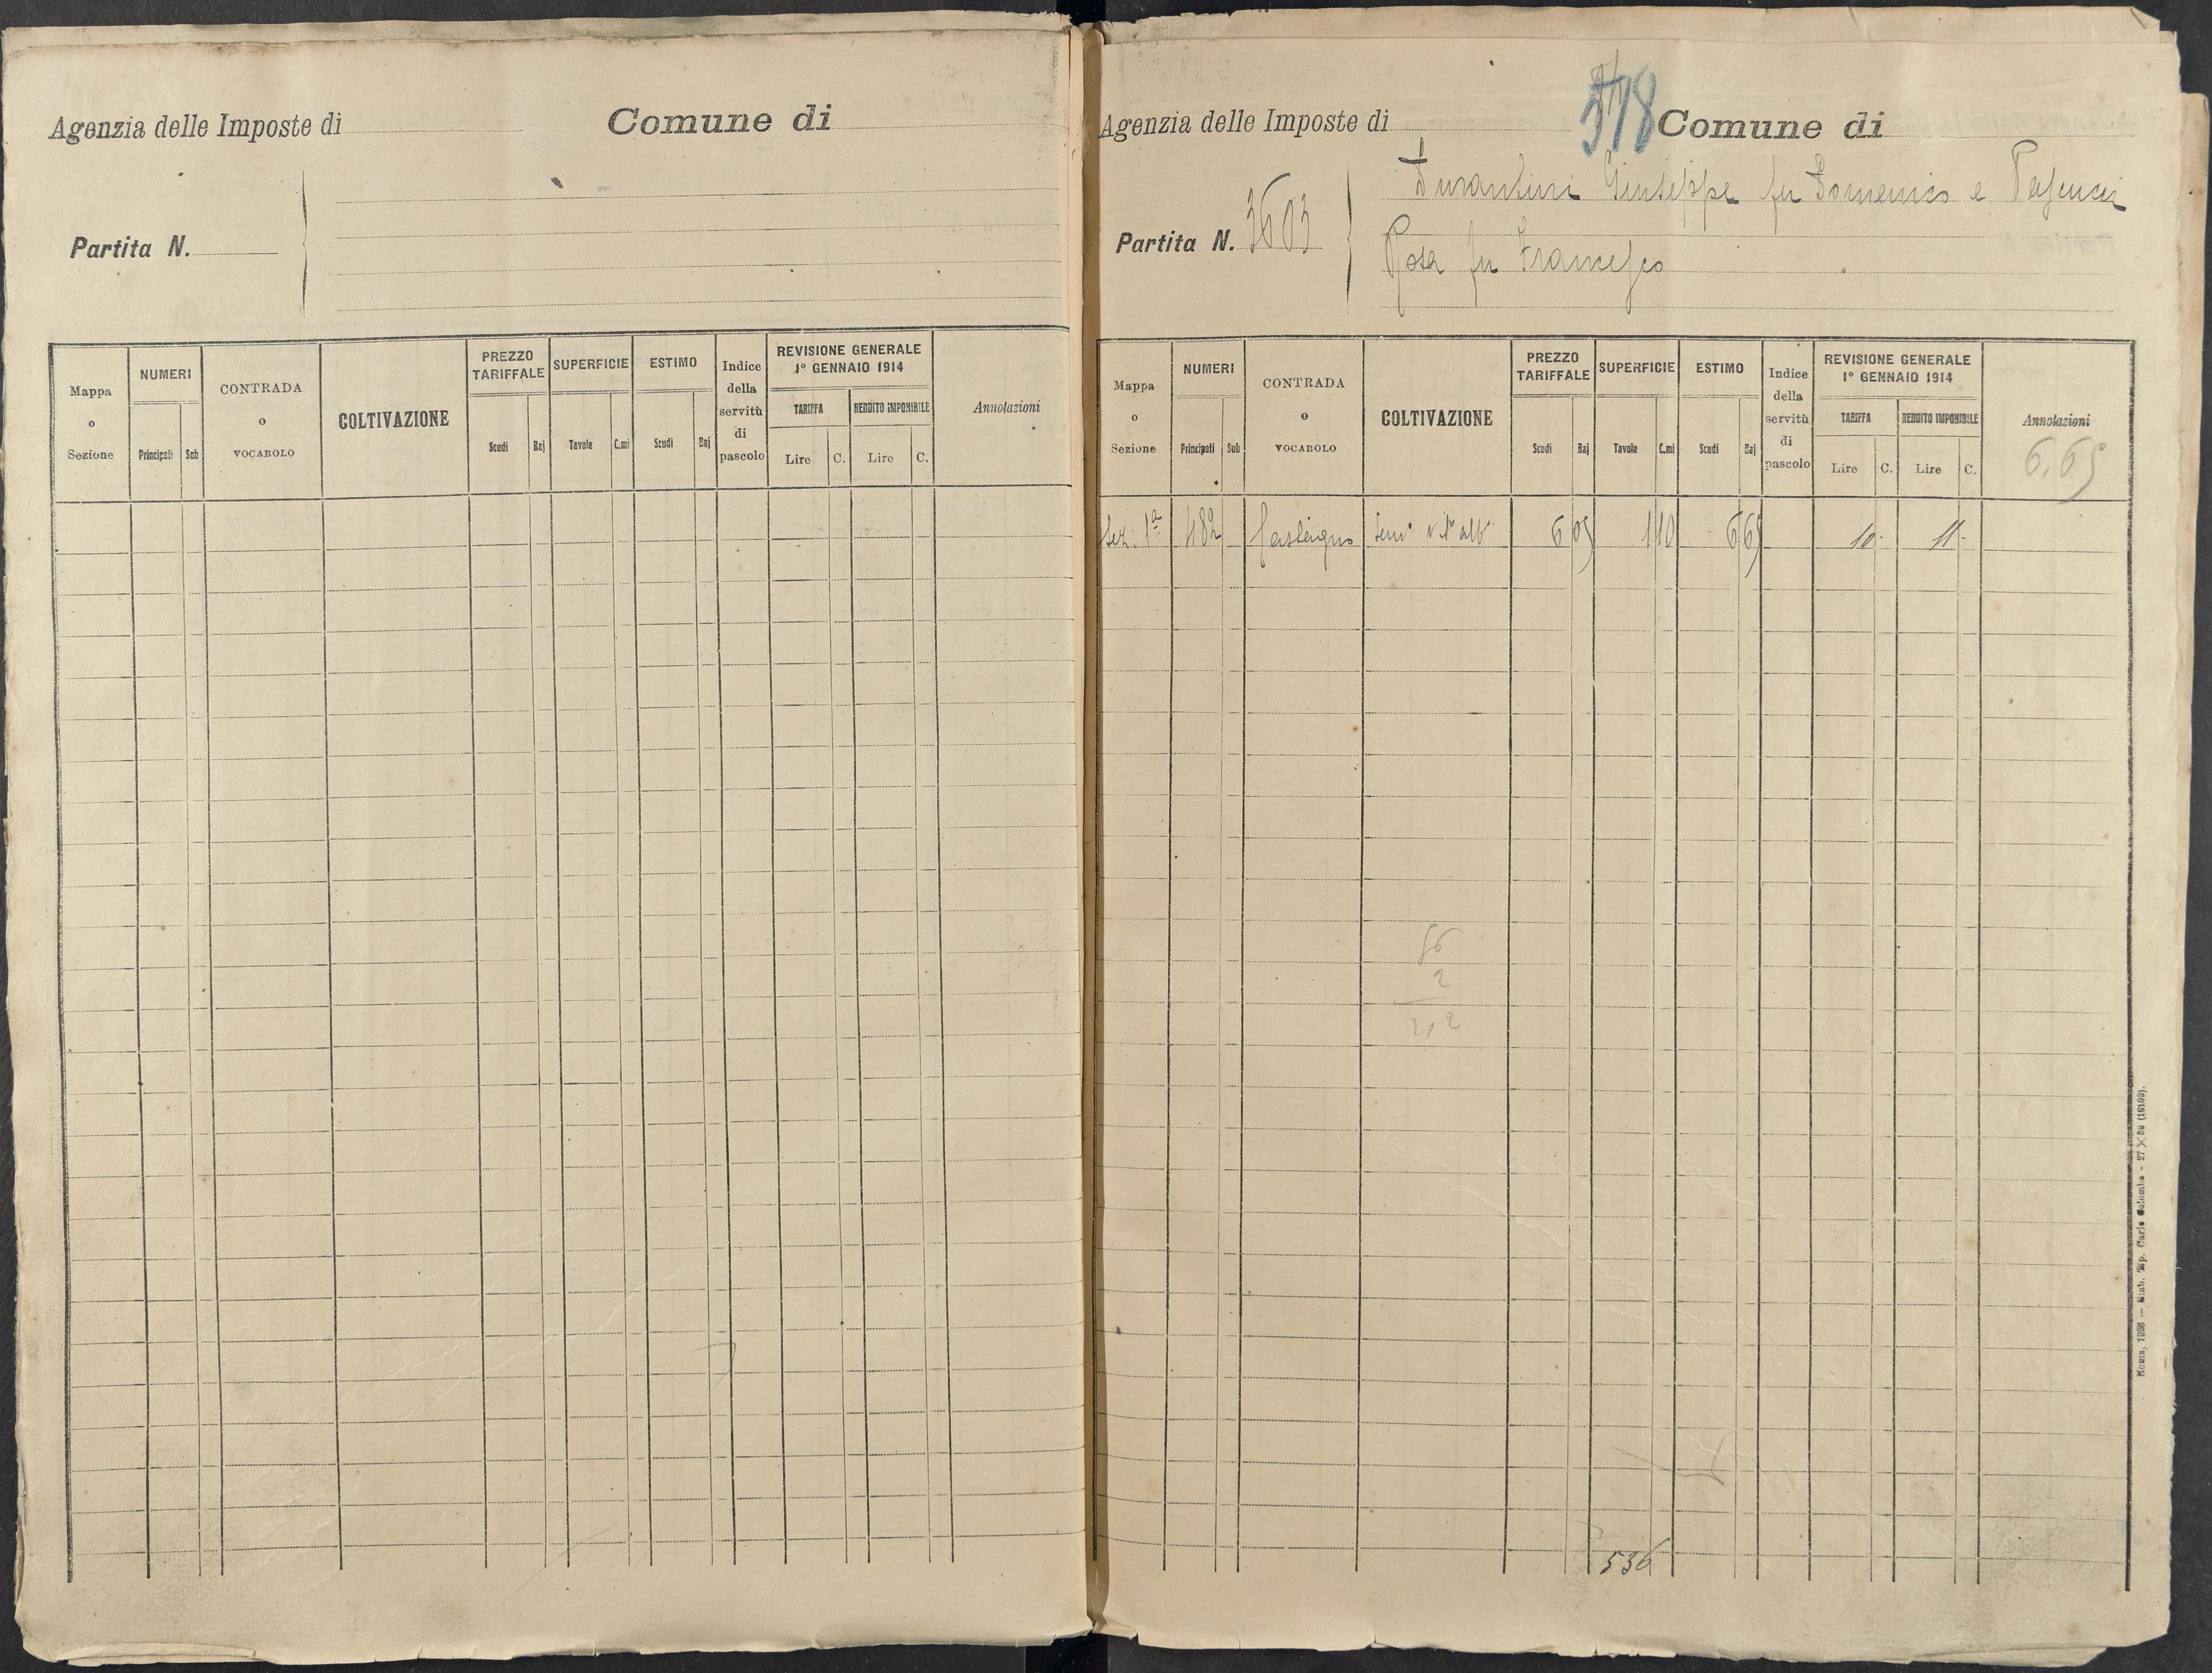 Agenzia delle Imposte di Comune di
Partita N.
Mappa o Sezione
NUMERI
Principali Sub
CONTRADA o VOCABOLO
COLTIVAZIONE
PREZZO TARIFFALE
Scudi Baj
SUPERFICIE
Tavole C.mi
ESTIMO
Scudi Baj
Indice della servitù di pascolo
REVISIONE GENERALE
1° GENNAIO 1914
TARIFFA REDDITO IMPONIBILE
Lire C. Lire C.
Annotazioni
Agenzia delle Imposte di 578 Comune di
Durantini Giuseppe fu Domenico e
Partita N. 3603
Rosa fu Francesco
Mappa o Sezione
NUMERI
Principali Sub
CONTRADA o VOCABOLO
COLTIVAZIONE
PREZZO TARIFFALE
Scudi Baj
SUPERFICIE
Tavole C.mi
ESTIMO
Scudi Baj
Indice della servitù di pascolo
REVISIONE GENERALE
1° GENNAIO 1914
TARIFFA REDDITO IMPONIBILE
Lire C. Lire C.
Annotazioni
6.65
Sez. 1ª 482 Castagno Sem° alb° 6 05 1 10 6 65 10 - 11 -
56
2
536
Tip. Carlo Colombo - 27